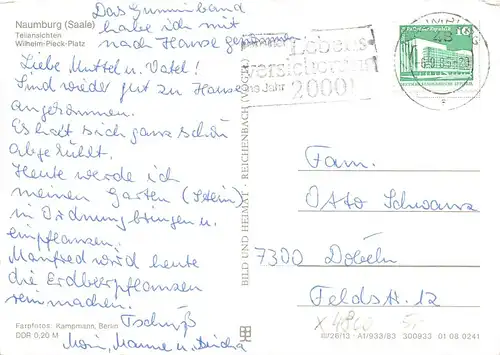 Naumburg (Saale)
Teilansichten
Wilhelm-Pieck-Platz
Das Gummiband
habe ich mit
nach Hause genommen
Liebe Muttel u. Vatel!
Sind wieder gut zu Hause
angekommen.
Es hat sich ganz schön
abgekühlt.
Heute werde ich
meinen Garten (Stein)
in Ordnung bringen u.
einpflanzen.
Manfred wird heute
die Erdbeerpflanzen
reinmachen.
Tschüß
Farbfotos: Kampmann, Berlin
DDR 0,20 M
BILD UND HEIMAT · REICHENBACH (VOGTL)
Lebens-
versicherung
ins Jahr
2000!
10
Fam.
Otto Schwarz
7300 Döbeln
Feldstr. 12
A1/933/83 300933 01 08 0241